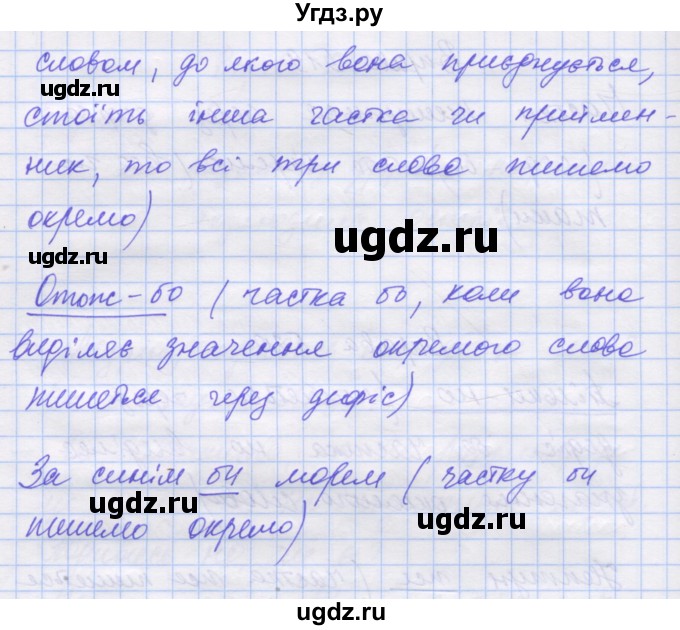 Угдз.ру
словом, до якого вона приєднується,
ugdz.ru
ugdz.ru
стоїть інша частка чи приймен-
ник, то всі три слова пишемо
окремо)
ugdz.ru
ugdz.ru
Отож-бо (частка бо, коли вона
виділяє значення окремого слова
пишеться через дефіс)
ugdz.ru
ugdz.ru
За синім би морем (частку би
ugdz.ru
ugdz.ru
пишемо окремо)
ugdz.ru